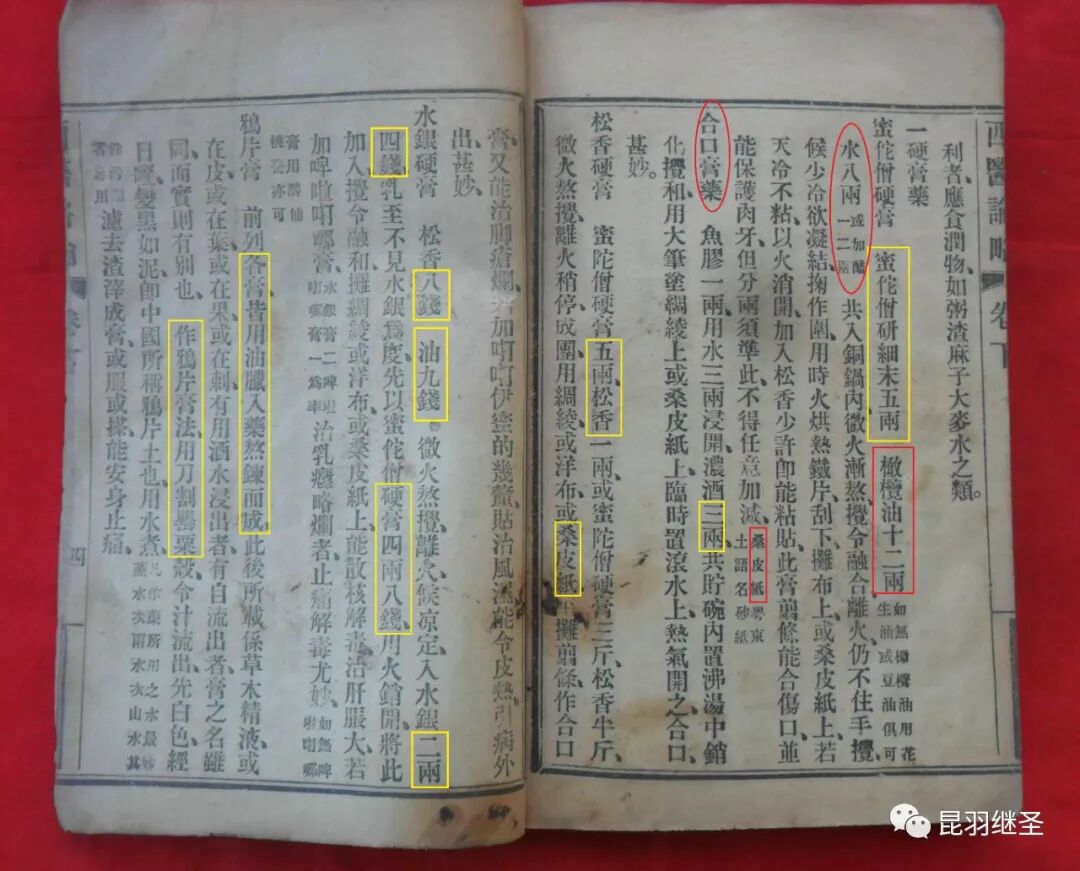 西醫論略 卷下
利者應食潤物、如粥渣麻子大麥水之類。
一硬膏藥
蜜佗僧硬膏 蜜佗僧研細末五兩 橄欖油十二兩 如無橄欖油用花生油或豆油俱可
水八兩 或加醋一二兩 共入銅鍋內微火漸熬、攪令融合離火、仍不住手攪、
候少冷欲凝結、掬作團、用時火烘熱鐵片、刮下攤布上、或桑皮紙上、若
天冷不粘、以火消開、加入松香少許、即能粘貼、此膏剪條、能合傷口、並
能保護肉牙、但分兩須準此、不得任意加減、桑皮紙粵東土語名砂紙
合口膏藥 魚膠一兩、用水三兩浸開、濃酒三兩、共貯碗內、置沸湯中銷
化攪和、用大筆塗綢綾上、或桑皮紙上、臨時置滾水上、熱氣開之、合口、
甚妙。
松香硬膏 蜜陀僧硬膏五兩、松香一兩、或蜜陀僧硬膏三斤、松香半斤、
微火熬攪、離火稍停、成團、用綢綾或洋布、或桑皮紙 攤剪條、作合口
膏、又能治脚瘡爛、若加 伊蜜的幾釐、貼治風濕、能令皮熱、引病外
出、甚妙、
水銀硬膏 松香八錢、油九錢、微火熬攪、離火候凉定、入水銀二兩
四錢、乳至不見水銀爲度、先以蜜佗僧硬膏四兩八錢、用火銷開、將此
加入、攪令融和、攤綢綾或洋布、或桑皮紙上、能散核解毒、治肝脹大、若
加啤啦 膏、水銀膏二啤啦 膏一爲率 治乳癰略爛者、止痛解毒尤妙、如無啤啦
膏用 仙桃 亦可
鴉片膏 前列各膏、皆用油臘入藥熬鍊而成、此後所載、係草木精液、或
在皮、或在葉、或在果、或在刺、有用酒水浸出者、有自流出者、膏之名雖
同、而實則有別也、作鴉片膏法、用刀割罌粟殼、令汁流出、先白色、經
日曬、變黑如泥、即中國所稱鴉片土也、用水煮、凡作藥所用之水最妙蒸水次雨水次山水其
濾去渣滓成膏、或服或搽、能安身止痛、
四
昆羽继圣